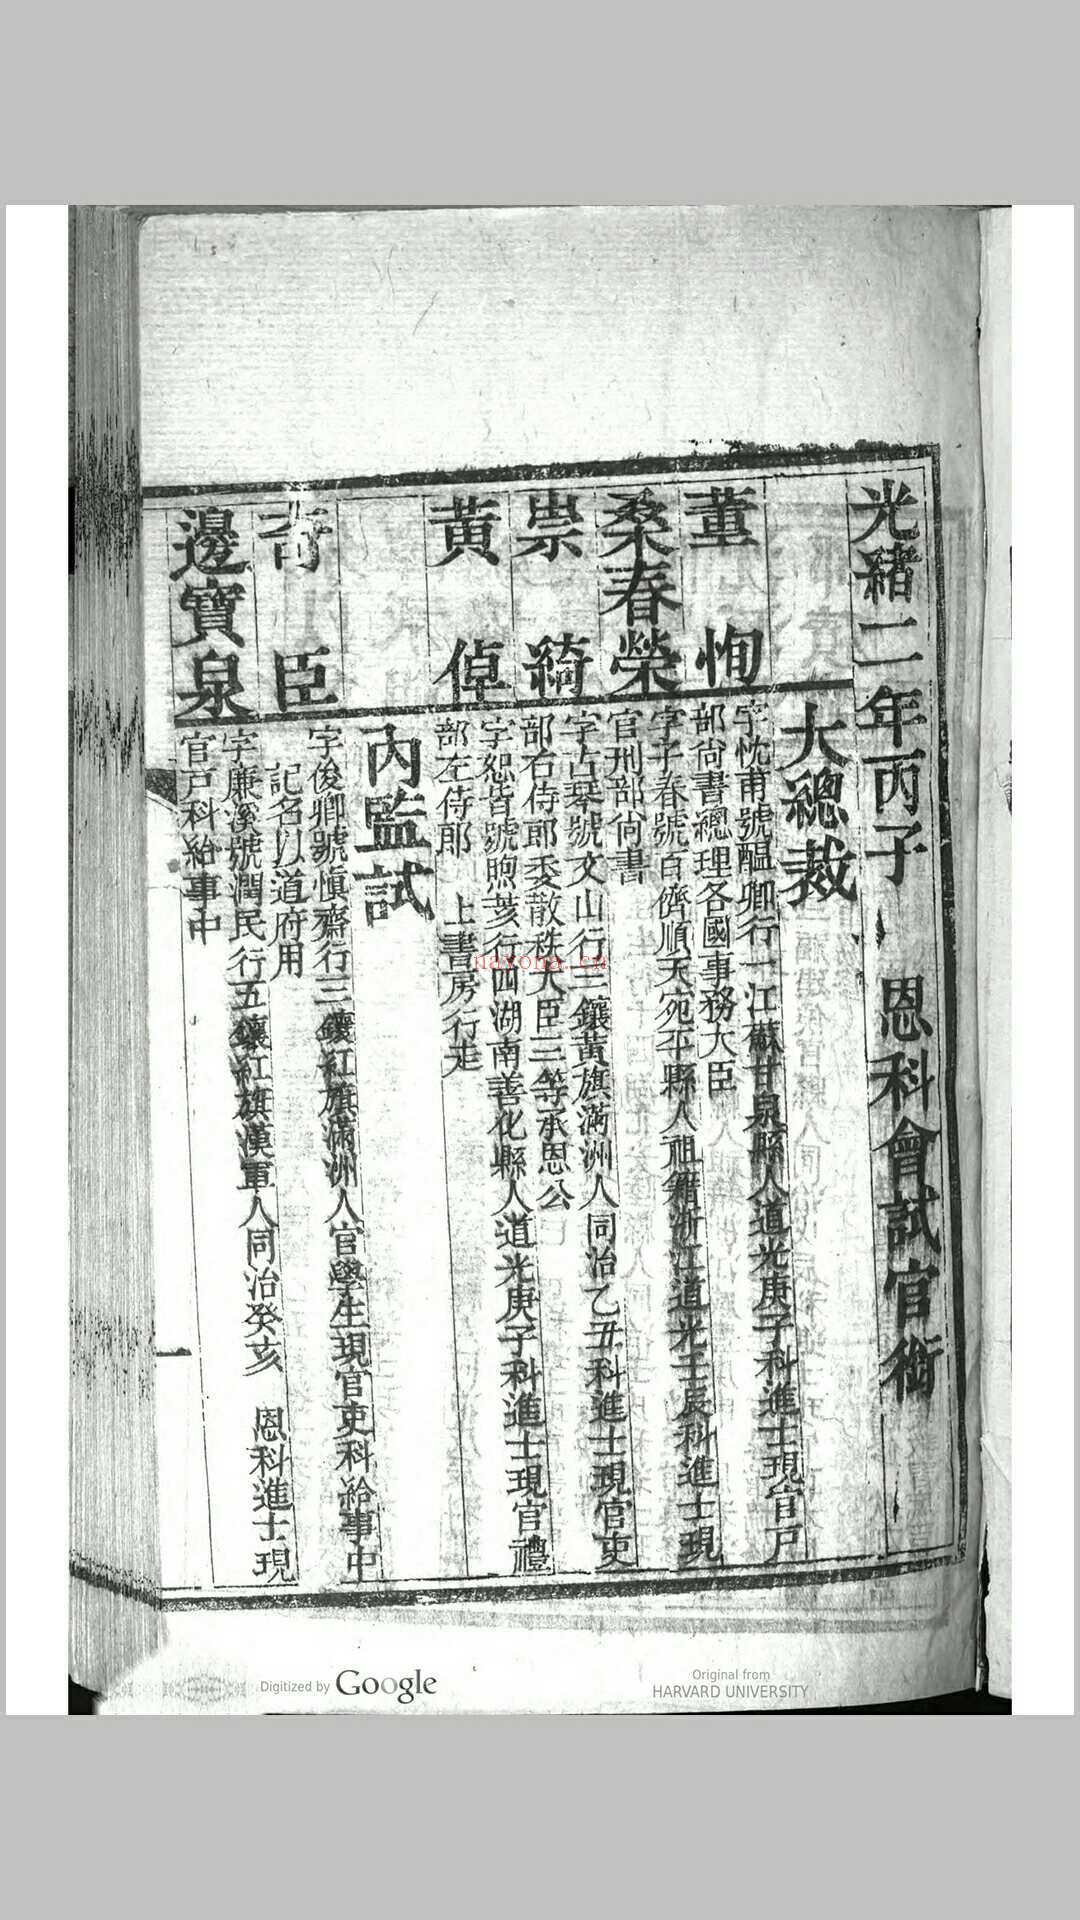 光緒二年丙子 恩科會試官銜
大總裁
董恂
字忱甫號醖卿行一江蘇甘泉縣人道光庚子科進士現官戶
部尙書總理各國事務大臣
桑春榮
字子春號百儕順天宛平縣人祖籍浙江道光壬辰科進士現
官刑部尙書
崇綺
字占琴號文山行三鑲黃旗滿洲人同治乙丑科進士現官吏
部右侍郎委散秩大臣三等承恩公
黃倬
字恕皆號煦荄行四湖南善化縣人道光庚子科進士現官禮
部左侍郎 上書房行走
內監試
奇臣
字俊卿號愼齋行三鑲紅旗滿洲人官學生現官吏科給事中
記名以道府用
邊寶泉
字廉溪號潤民行五鑲紅旗漢軍人同治癸亥 恩科進士現
官戶科給事中
一
naxona.cn
Digitized by Google
Original from
HARVARD UNIVERSITY